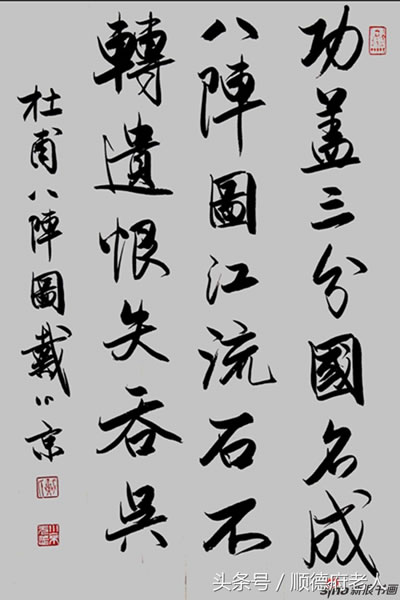 功盖三分國名成
八陣圖江流石不
轉遺恨失吞吳
杜甫八陣圖戴小京
头条号/顺德府老人
sina新浪书画